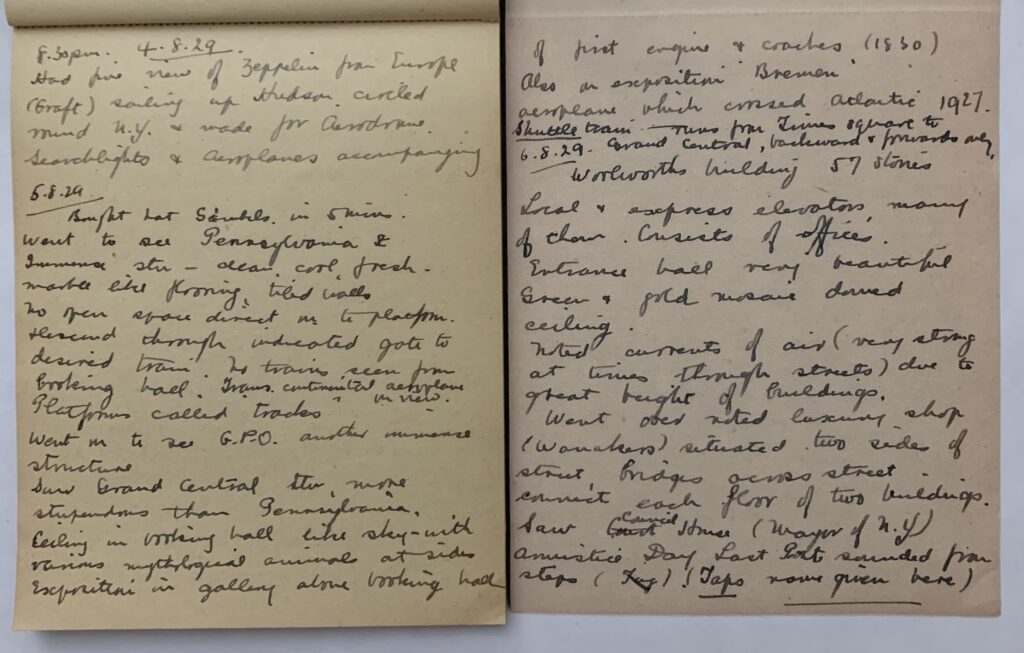 8.30pm. 4.8.29.
Had fine view of Zeppelin from Europe
(Graft) sailing up Hudson, circled
round N.Y. & made for Aerodrome.
Searchlights & Aeroplanes accompanying
5.8.29
Bought hat Saks in 5 mins.
Went to see Pennsylvania &
Immense stn - clean, cool, fresh.
marble like flooring, tiled walls
No open space direct on to platform.
Descend through indicated gate to
desired train. No trains seen from
booking hall. Trans. continental aeroplane
in view.
Platforms called tracks
Went on to see G.P.O. another immense
structure
Saw Grand Central Stn, more
stupendous than Pennsylvania.
Ceiling in booking hall like sky - with
various mythological animals at sides
Exposition in gallery above booking hall
of first engine & coaches (1830)
Also on exposition "Bremen"
aeroplane which crossed Atlantic 1927.
Shuttle train - runs from Times square to
6.8.29. Grand Central, backward & forwards only,
Woolworths building 57 stories
Local & express elevators, many
of them. Consists of offices.
Entrance hall very beautiful
Green & gold mosaic domed
ceiling.
Noted currents of air (very strong
at times through streets) due to
great height of buildings.
Went over noted luxury shop
(Wanakers) situated two sides of
street, bridges across street
connect each floor of two buildings.
Saw Council House (Mayor of N.Y)
Armistice Day Last Post sounded from
steps ( ) (Taps name given here)